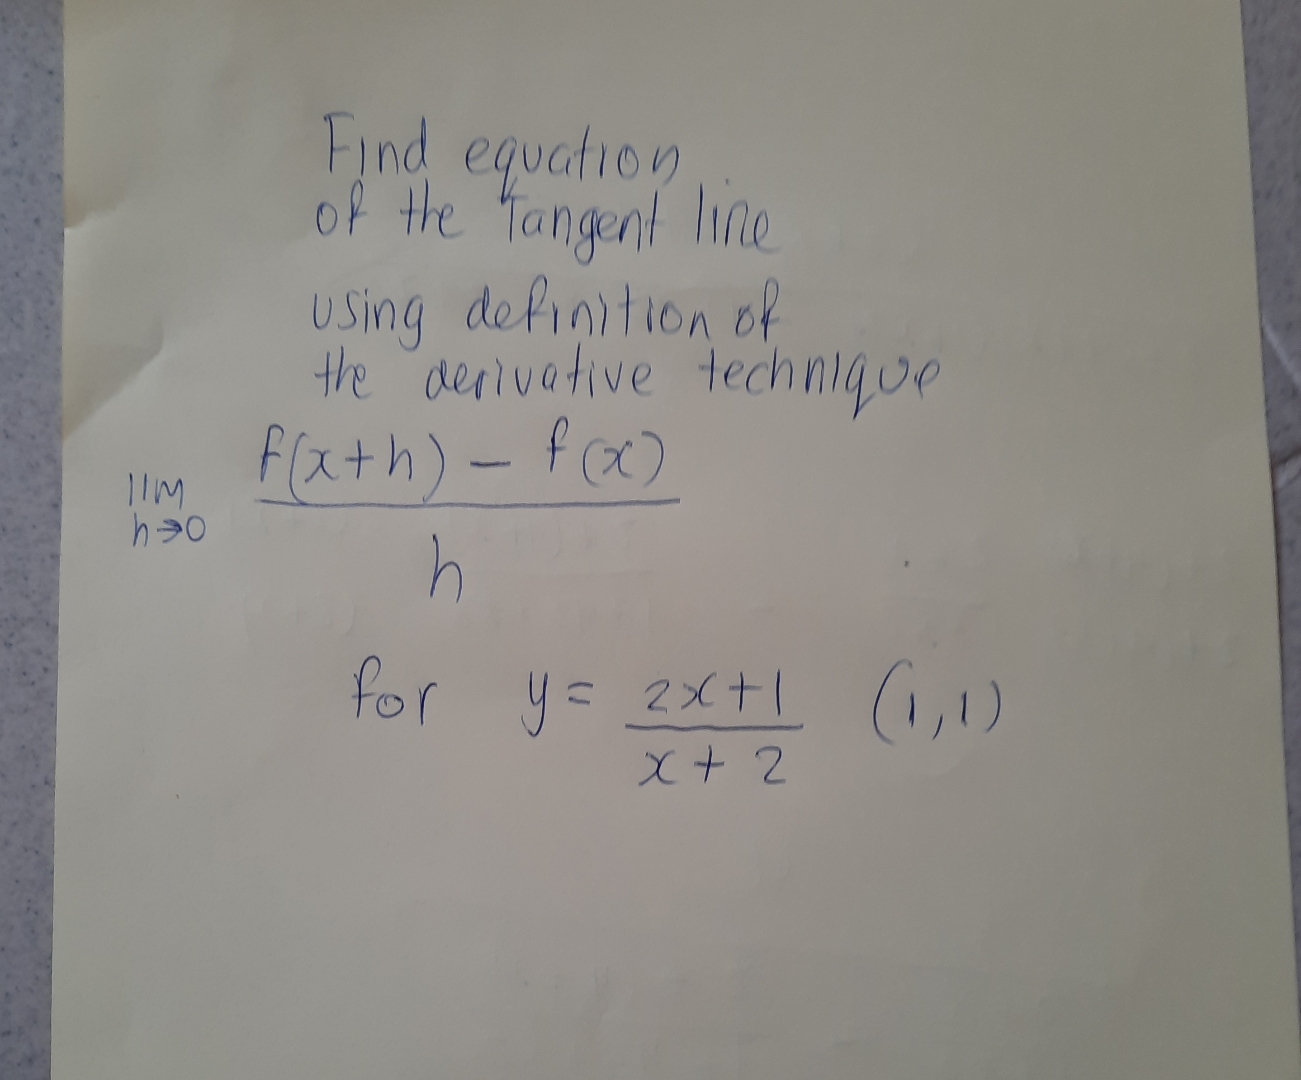 Find equation
of the Tangent line
using definition of
the derivative technique
lim h→0 f(x+h) - f(x) / h
for y = 2x+1 / x+2 (1,1)